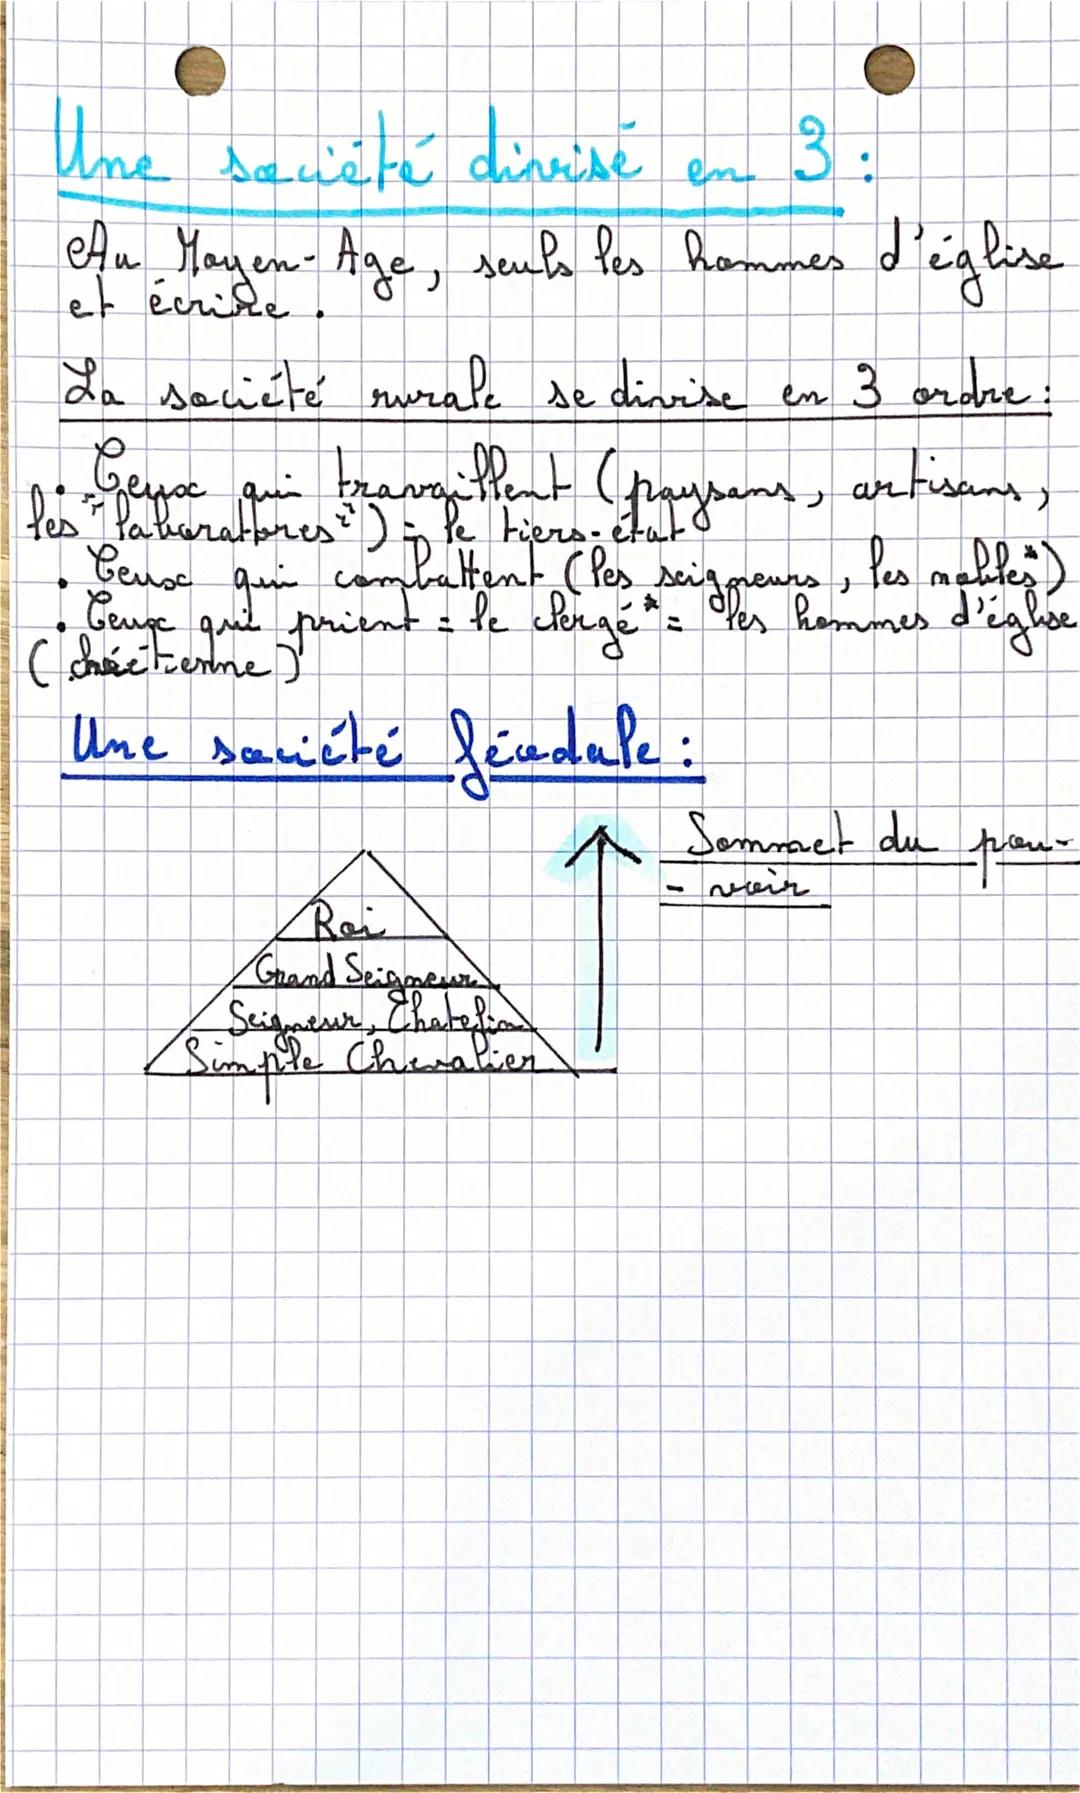 Une société divisé en 3 :
Au Moyen-Age, seuls les hommes d'église
et écrire .
La société rurale se divise en 3 ordre :
. Ceux qui travaillent (paysans, artisans,
les "laboratores") = le tiers-état
. Ceux qui combattent (les seigneurs, les nobles*)
. Ceux qui prient = le clergé* = les hommes d'église
(chrétienne)
Une société féodale :
Sommet du pou-
- voir
Roi
Grand Seigneur
Seigneur, Châtelin
Simple Chevalier